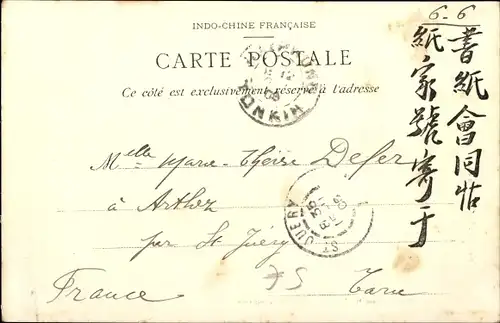 INDO-CHINE FRANÇAISE
CARTE POSTALE
Ce côté est exclusivement réservé à l'adresse
TONKIN
Melle Marie-Thérèse Defer
à Arthez
par St Juéry
Tarn
France
ST JUERY
6-6
書紙會同帖
紙家號寄于